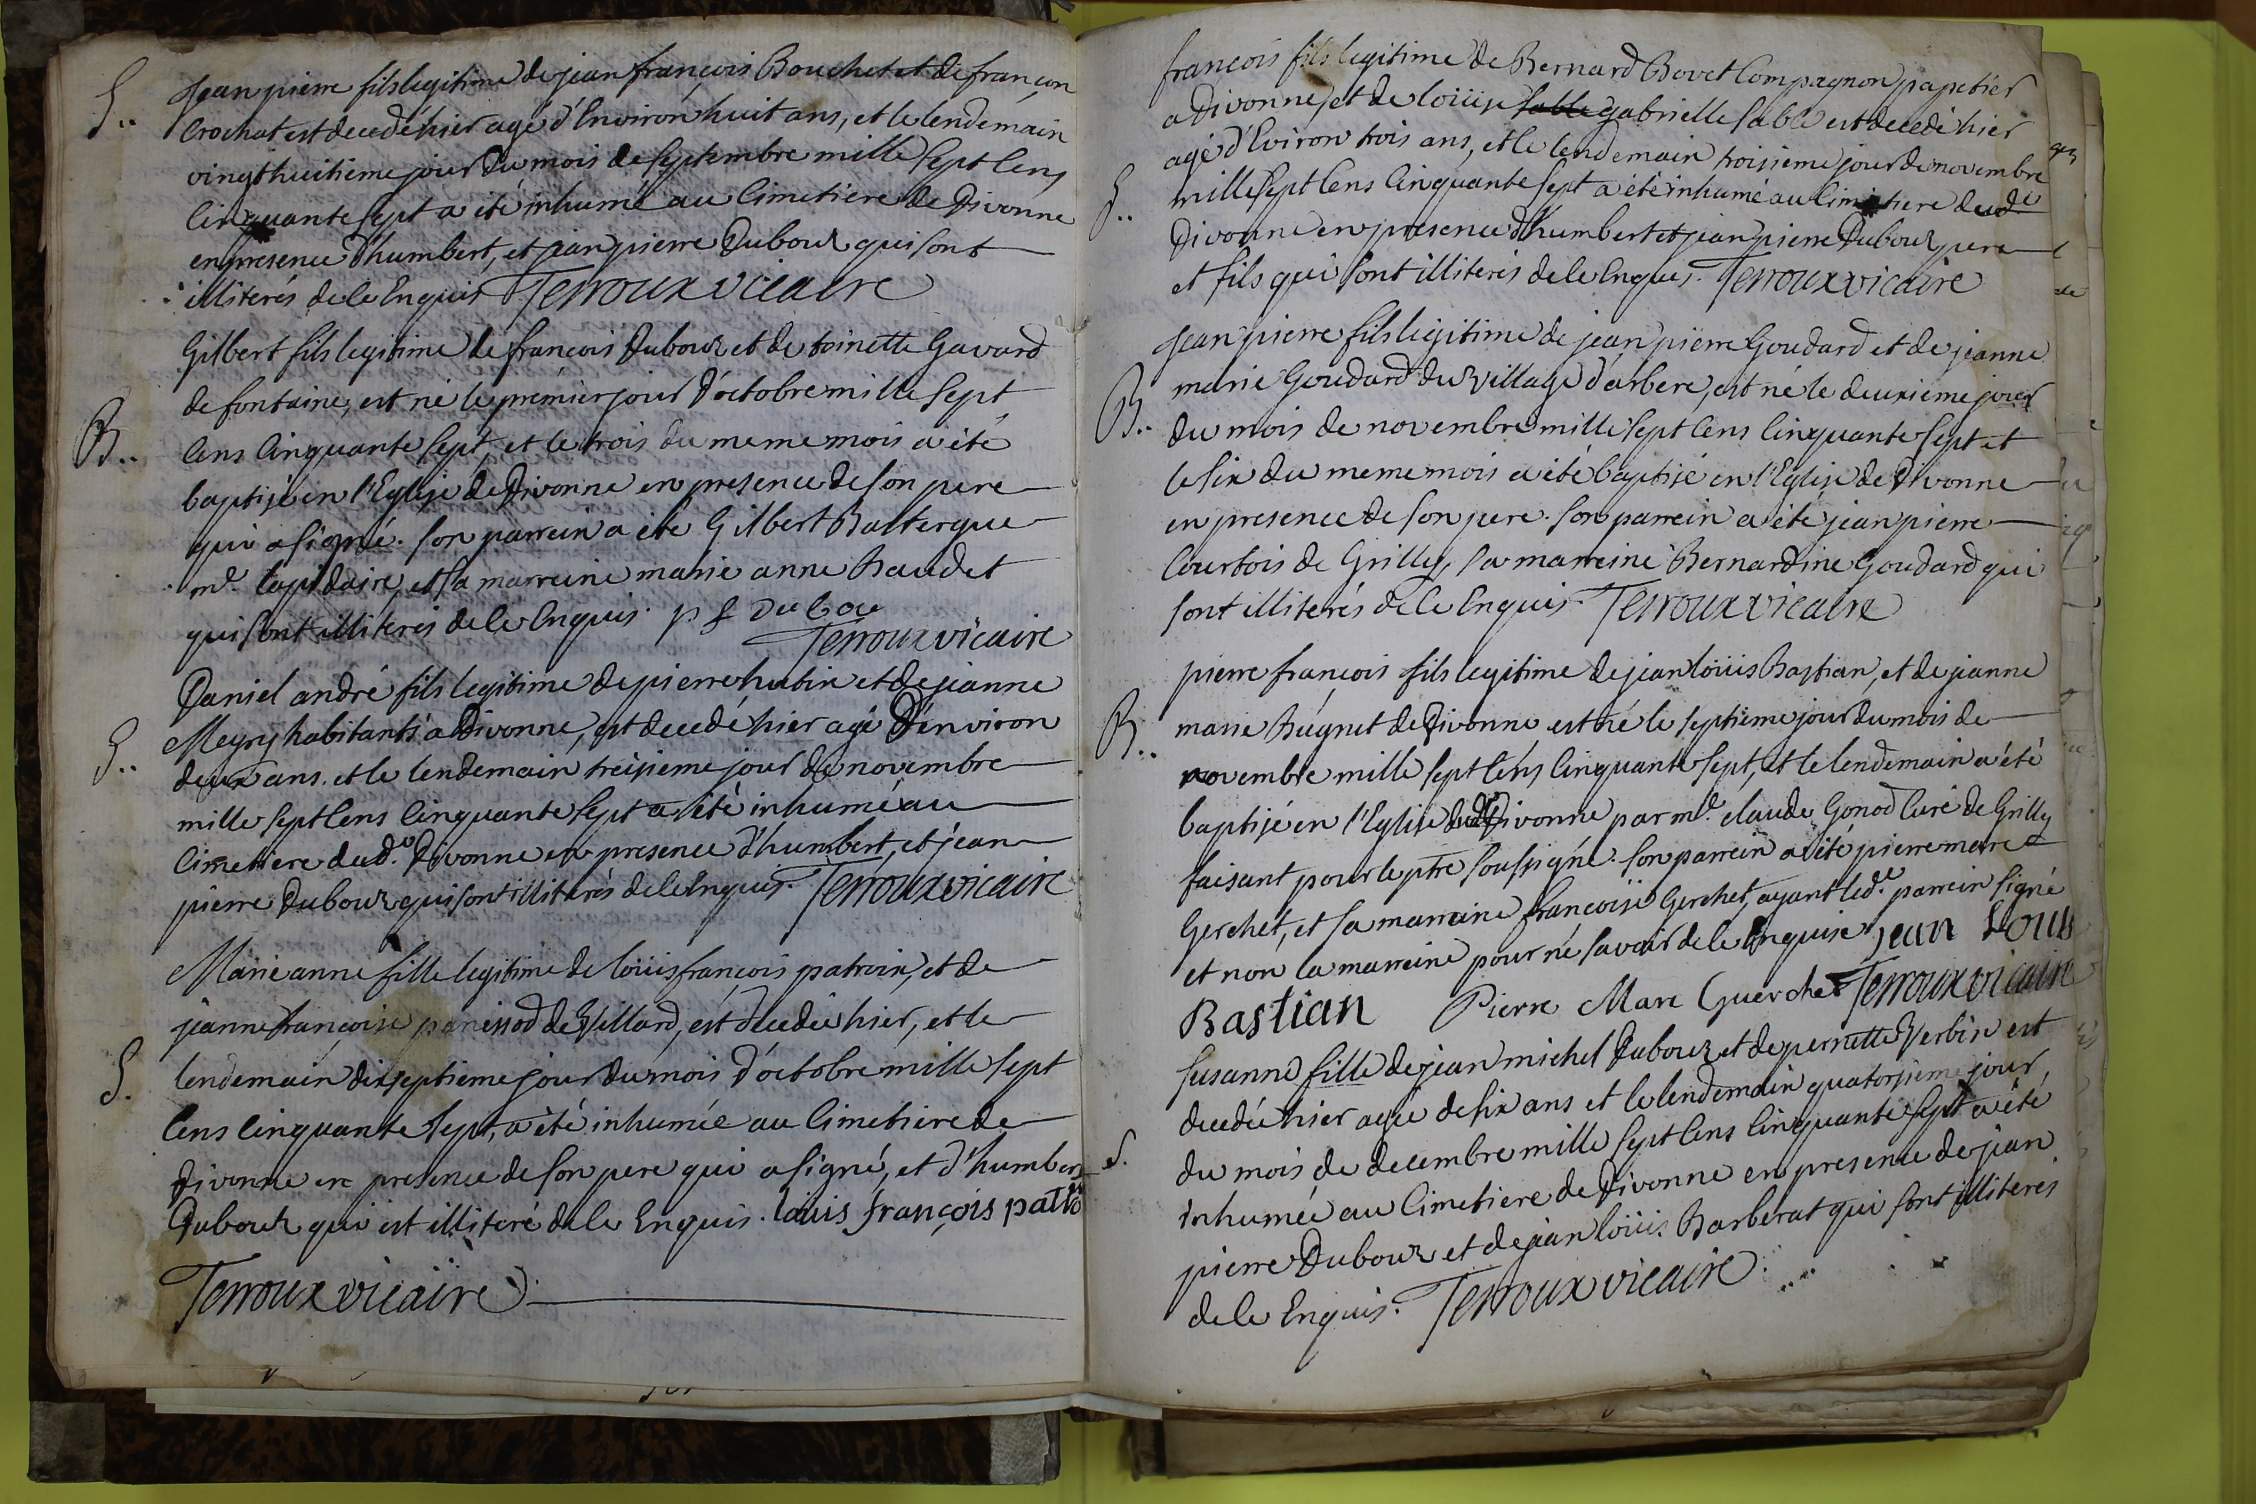 S..
Jean pierre fils legitime de jean françois Bouchet et de françon
Crochat est decedé hier agé d'Environ huit ans, et le lendemain
vingt huitieme jour du mois de septembre mille sept Cens
Cinquante sept a été inhumé au Cimetiere de Divonne
en presence d'humbert, et jean pierre Dubouz qui sont
illiterés de ce Enquis Terroux vicaire
B..
Gilbert fils legitime de francois Dubouz et de toinette Gavard
de fontaine, est né le premier jour d'octobre mille sept
Cens Cinquante sept, et le trois du meme mois a été
baptisé en l'Eglise de Divonne en presence de son pere
qui a signé. son parrein a été Gilbert Batterque
md. lapidaire, et sa marreine marie anne Baudet
qui sont illiterés de ce Enquis. p f Dubou
Terroux vicaire
S..
Daniel andré fils legitime de pierre hutin et de jeanne
Megry habitants a Divonne, est decedé hier agé D'environ
deux ans. et le lendemain treisieme jour de novembre
mille sept Cens Cinquante sept a été inhumé au
Cimetiere dud.t Divonne en presence d'humbert, et jean
pierre Dubouz qui sont illiterés de ce Enquis. Terroux vicaire
S.
Marie anne fille legitime de loüis françois patroin, et de
jeanne françoise panissod de Villard, est decedée hier, et le
lendemain dixseptieme jour du mois d'octobre mille sept
Cens Cinquante sept, a été inhumée au Cimetiere de
Divonne en presence de son pere qui a signé, et d'humbert
Dubouz qui est illiteré de ce Enquis. loüis françois patro
Terroux vicaire
S..
francois fils legitime de Bernard Bovet Compagnon papetier
a Divonne, et de loüise sable gabrielle sable est decedé hier
agé d'Eviron trois ans, et le lendemain troisieme jour de novembre
mille sept Cens Cinquante sept a été inhumé au Cimetiere dud.t
Divonne en presence d'humbert et jean pierre Dubouz pere
et fils qui sont illiterés de ce Enquis. Terroux vicaire
B..
Jean pierre fils legitime de jean pierre Goudard et de jeanne
marie Goudard du village d'arbere, est né le deuxieme jour
du mois de novembre mille sept Cens Cinquante sept et
le six du meme mois a été baptisé en l'Eglise de Divonne
en presence de son pere. son parrein a été jean pierre
Courtois de Grilly, sa marreine Bernardine Goudard qui
sont illiterés de ce Enquis Terroux vicaire
B..
pierre françois fils legitime de jean loüis Bastian, et de jeanne
marie Bugnet de Divonne est né le septieme jour du mois de
novembre mille sept Cens Cinquante sept, et le lendemain a été
baptisé en l'Eglise de Divonne par md. claude Gonod Curé de Grilly
faisant pour le ptre soussigné. son parrein a été pierre marc
Gerchet, et sa marreine francoise Gerchet, ayant led.t parrein signé
et non la marreine pour ne savoir de ce Enquise jean Louis
Bastian Pierre Marc Guerchet Terroux vicaire
S.
Susanne fille de jean michel Dubouz et de pernette Verbin est
decedée hier agée de six ans et le lendemain quatorsieme jour,
du mois de decembre mille sept Cens Cinquante sept a été
inhumée au Cimetiere de Divonne en presence de jean
pierre Dubouz et de jean loüis Barberat qui sont illiterés
de ce Enquis. Terroux vicaire